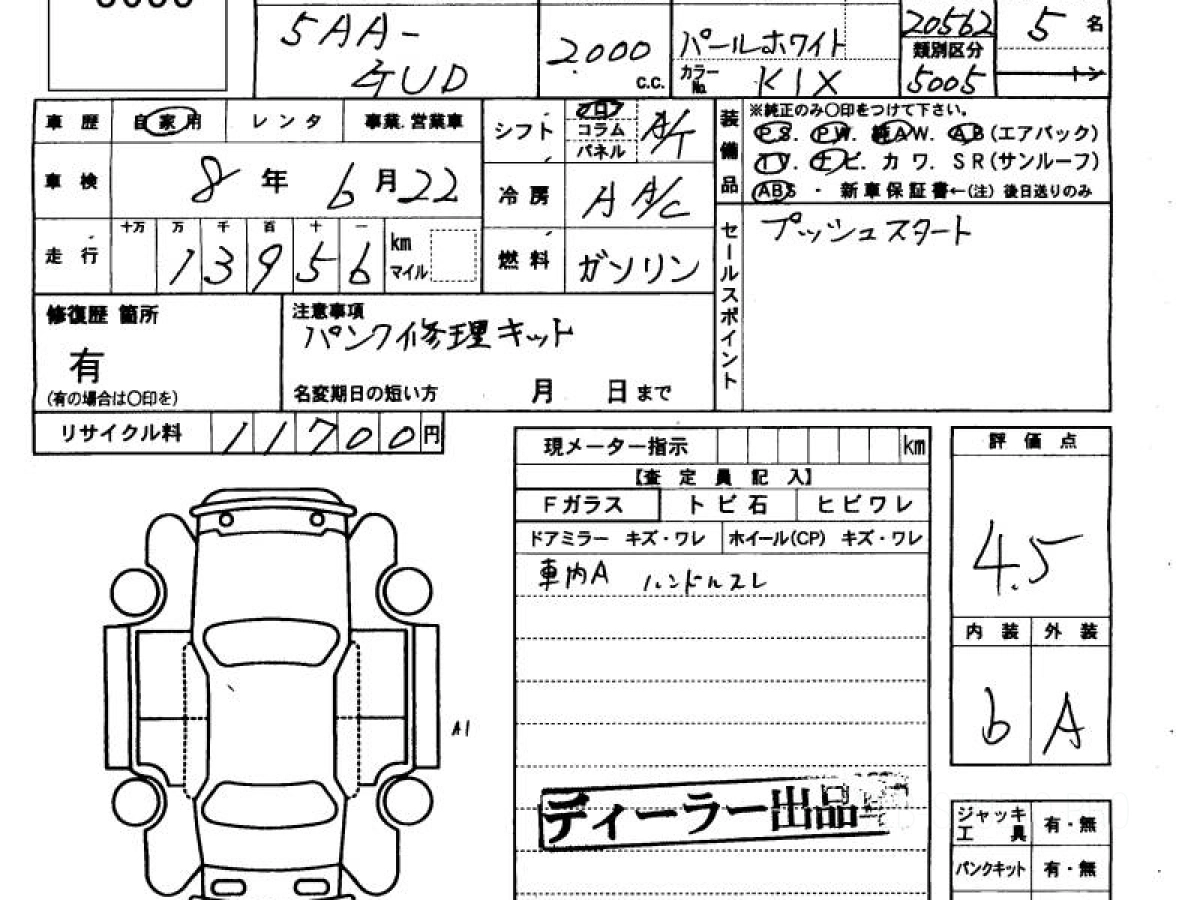 5AA-
GUD
2.000
C.C.
パールホワイト
カラー
No.
K1X
20562
類別区分
5005
5名
トン
車歴
自家用
レンタ
事業.営業車
シフト
フロア
コラム
パネル
A/T
車検
8年6月22
冷房
A A/C
走行
十万 万 千 百 十 一
1 3 9 5 6
km
マイル
燃料
ガソリン
装備品
※純正のみ〇印をつけて下さい。
PS. PW. 純AW. AB(エアバック)
TV. ナビ. カワ. SR(サンルーフ)
ABS ・ 新車保証書←(注) 後日送りのみ
セールスポイント
プッシュスタート
修復歴 箇所
有
(有の場合は〇印を)
注意事項
パンク修理キット
名変期日の短い方 月 日まで
リサイクル料 11700円
現メーター指示 km
【査定員記入】
Fガラス トビ石 ヒビワレ
ドアミラー キズ・ワレ ホイール(CP) キズ・ワレ
車内A ハンドルスレ
ディーラー出品
A1
評価点
4.5
内装 外装
b A
ジャッキ
工具
有・無
パンクキット 有・無